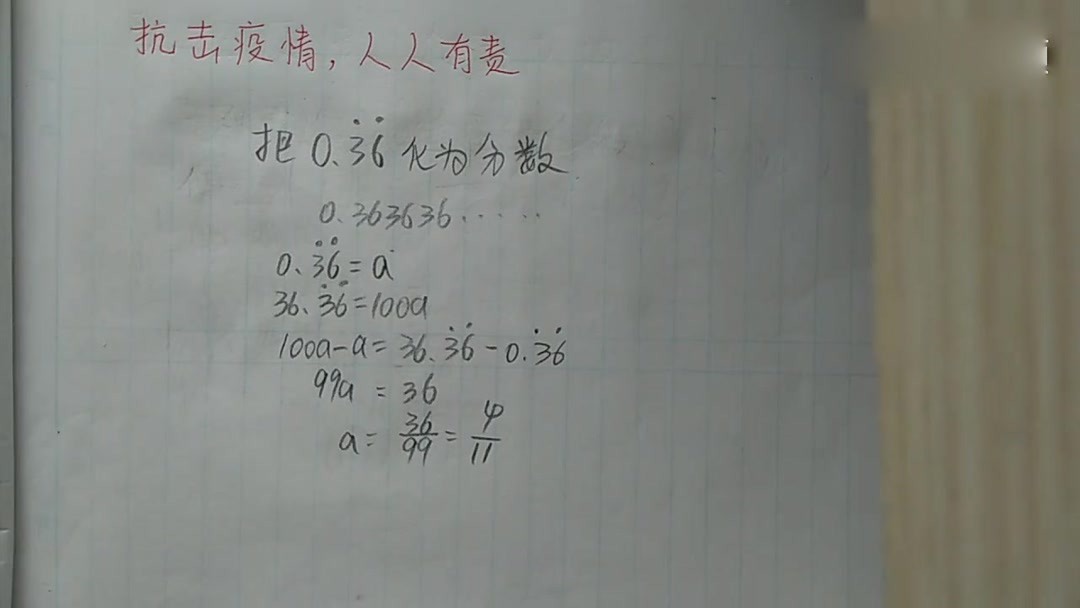 抗击疫情,人人有责
把0.3̇6̇化为分数
0.363636······
0.3̇6̇=a
36.3̇6̇=100a
100a-a=36.3̇6̇-0.3̇6̇
99a=36
a=36/99=4/11